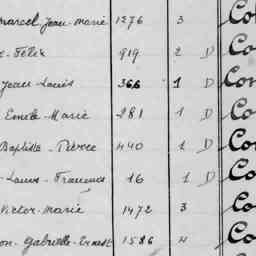 marcel Jean-marie 1276 3 Co
- Félix 919 2 D Co
Jean-Louis 366 1 D Con
Emile-Marie 281 1 D Co
Baptiste-Pierre 440 1 D Co
-Louis-François 16 1 D Co
Victor-marie 1472 3 Co
on-Gabrielle-Ernest 1586 4 Co